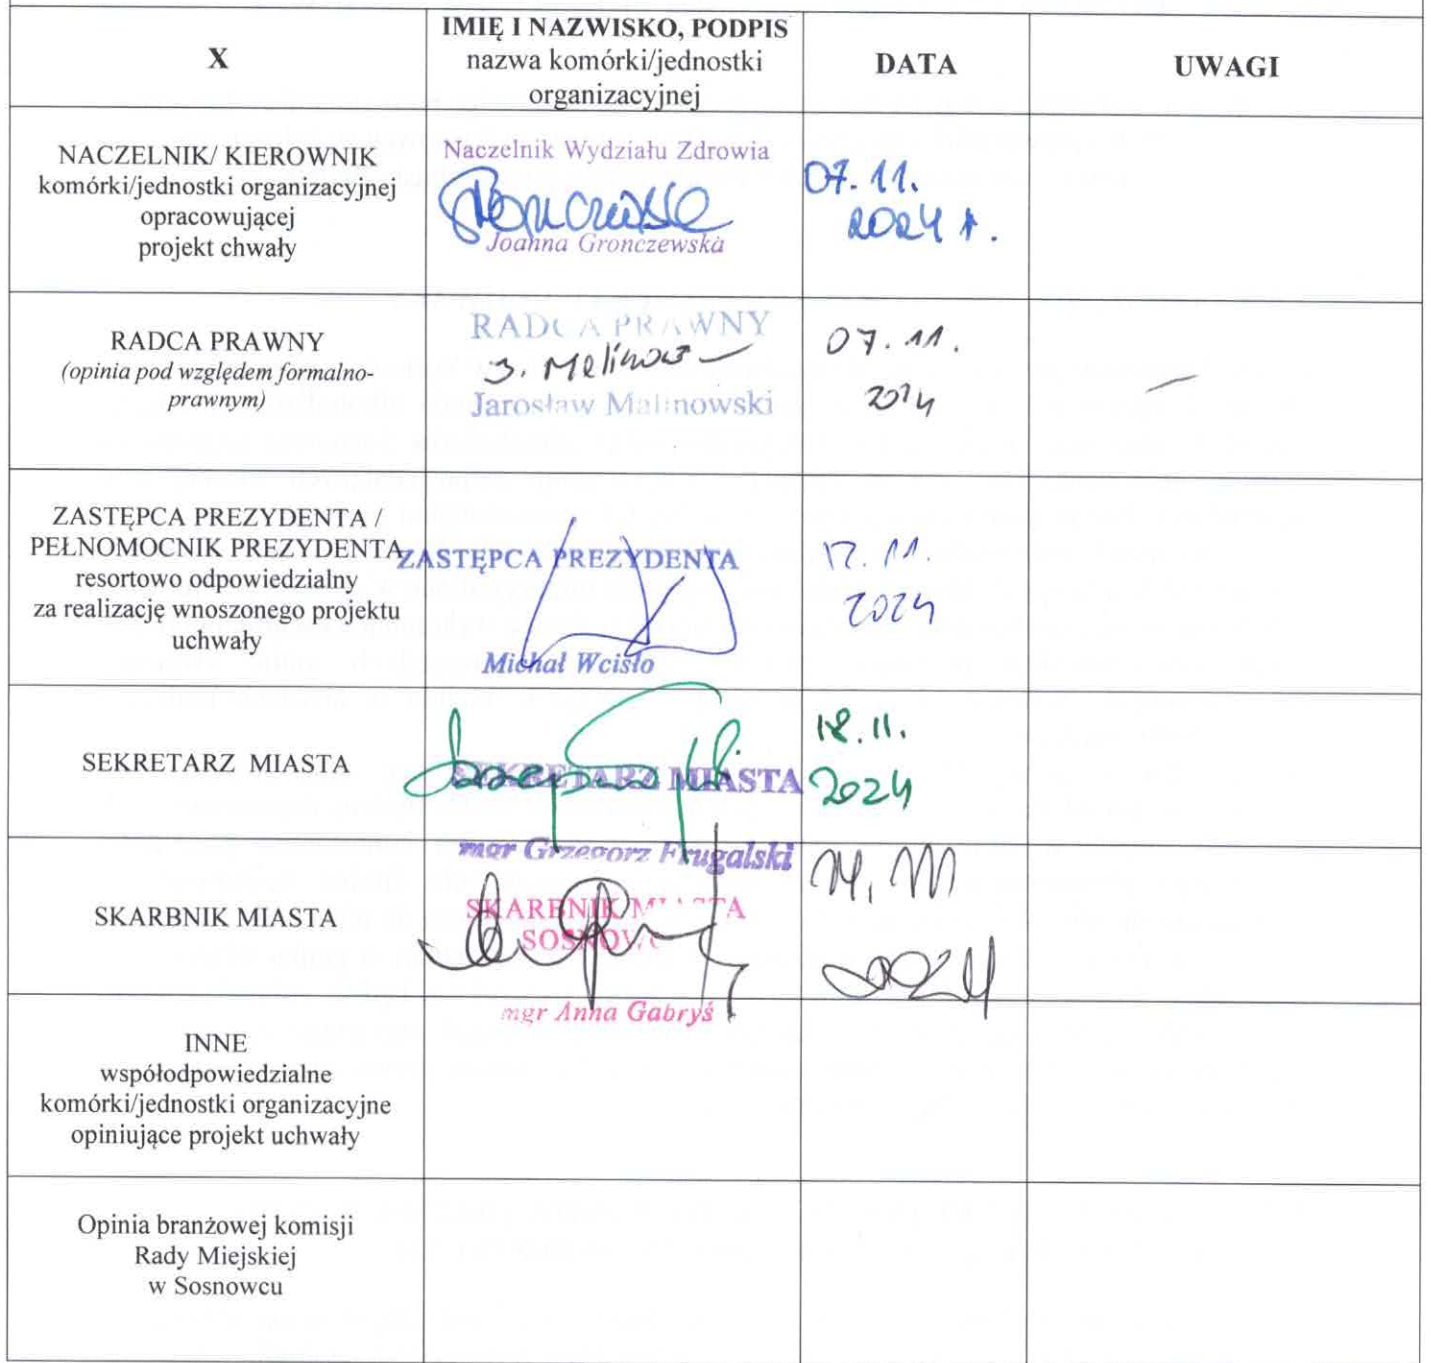 X
IMIĘ I NAZWISKO, PODPIS
nazwa komórki/jednostki
organizacyjnej
DATA
UWAGI
NACZELNIK/ KIEROWNIK
komórki/jednostki organizacyjnej
opracowującej
projekt chwały
Naczelnik Wydziału Zdrowia
Joanna Gronczewska
07.11.
2024 r.
RADCA PRAWNY
(opinia pod względem formalno-
prawnym)
RADCA PRAWNY
J. Malinows
Jarosław Malinowski
07.11.
2024
ZASTĘPCA PREZYDENTA /
PEŁNOMOCNIK PREZYDENTA
resortowo odpowiedzialny
za realizację wnoszonego projektu
uchwały
ZASTĘPCA PREZYDENTA
Michał Wcisło
17.11.
2024
SEKRETARZ MIASTA
SEKRETARZ MIASTA
mgr Grzegorz Frugalski
18.11.
2024
SKARBNIK MIASTA
SKARBNIK MIASTA
SOSNOWC
mgr Anna Gabryś
2024
INNE
współodpowiedzialne
komórki/jednostki organizacyjne
opiniujące projekt uchwały
Opinia branżowej komisji
Rady Miejskiej
w Sosnowcu